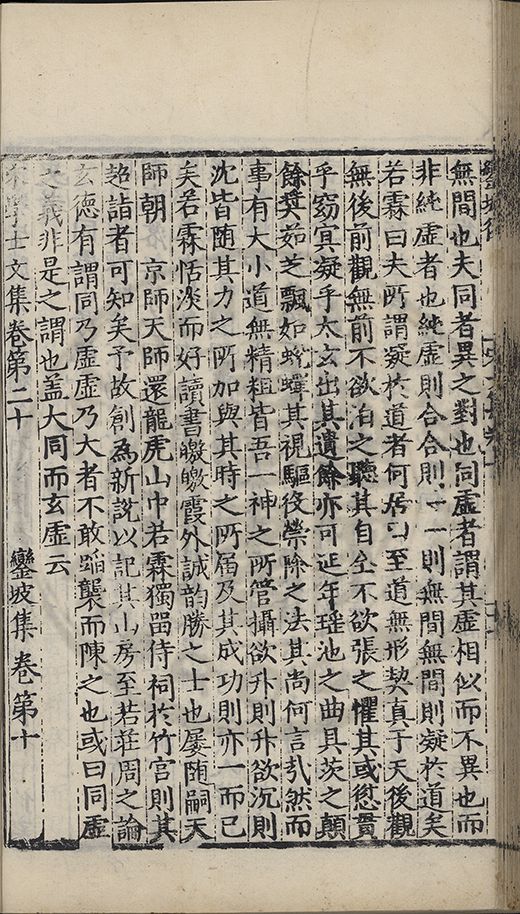 無間也夫同者異之對也同虛者謂其虛相似而不異也而
非純虛者也純虛則合合則一一則無間無間則凝於道矣
若霖曰夫所謂凝於道者何居曰至道無形契真于天後觀
無後前觀無前不欲泊之聽其自全不欲張之懼其或愆貫
乎窈冥凝乎太玄出其遺餘亦可延年瑤池之曲具茨之顛
餘龔茹芝飄如蛻蟬其視驅役禜除之法其尚何言㢤然而
事有大小道無精粗皆吾一神之所管攝欲升則升欲沉則
沈皆随其力之所加與其時之所届及其成功則亦一而已
矣若霖恬淡而好讀書皦皦霞外誠韵勝之士也屡随嗣天
師朝 京師天師還龍虎山中若霖獨留侍祠於竹宮則其
超詣者可知矣予故創爲新説以記其山房至若莊周之論
玄德有謂同乃虛虛乃大者不敢蹈襲而陳之也或曰同虛
之義非是之謂也盖大同而玄虛云
宋學士文集卷第二十 鑾坡集卷第十